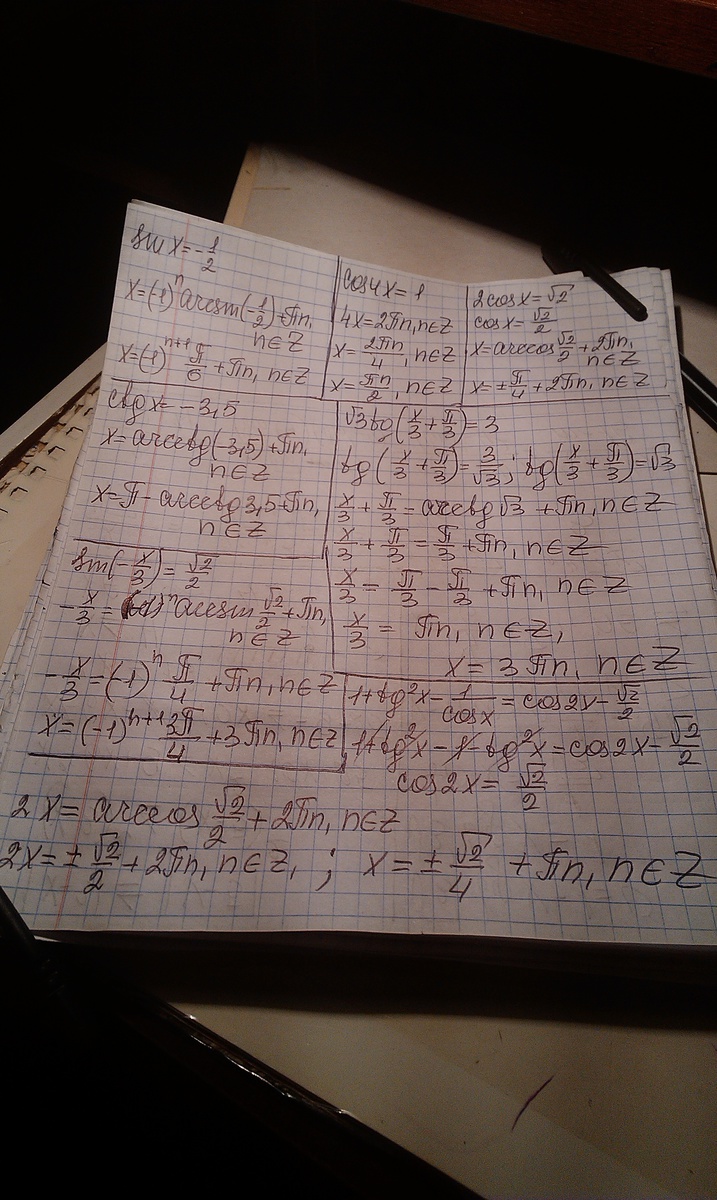 sin x = -1/2
x = (-1)^n arcsin(-1/2) + πn,
n∈Z
x = (-1)^{n+1} π/6 + πn, n∈Z
cos4x = 1
4x = 2πn, n∈Z
x = 2πn/4, n∈Z
x = πn/2, n∈Z
2cosx = √2
cosx = √2/2
x = arccos √2/2 + 2πn,
n∈Z
x = ±π/4 + 2πn, n∈Z
ctg x = -3,5
x = arcctg(-3,5) + πn,
n∈Z
x = π - arcctg3,5 + πn,
n∈Z
√3tg(x/3 + π/3) = 3
tg(x/3 + π/3) = 3/√3; tg(x/3 + π/3) = √3
x/3 + π/3 = arcctg √3 + πn, n∈Z
x/3 + π/3 = π/3 + πn, n∈Z
x/3 = π/3 - π/3 + πn, n∈Z
x/3 = πn, n∈Z,
x = 3πn, n∈Z
sin(-x/3) = √2/2
-x/3 = (-1)^n arcsin √2/2 + πn,
n∈Z
-x/3 = (-1)^n π/4 + πn, n∈Z
x = (-1)^{n+1} 3π/4 + 3πn, n∈Z
1+tg²x - 1/cosx = cos2x - √2/2
1+tg²x - 1 - tg²x = cos2x - √2/2
cos2x = √2/2
2x = arccos √2/2 + 2πn, n∈Z
2x = ±√2/2 + 2πn, n∈Z, ; x = ±√2/4 + πn, n∈Z